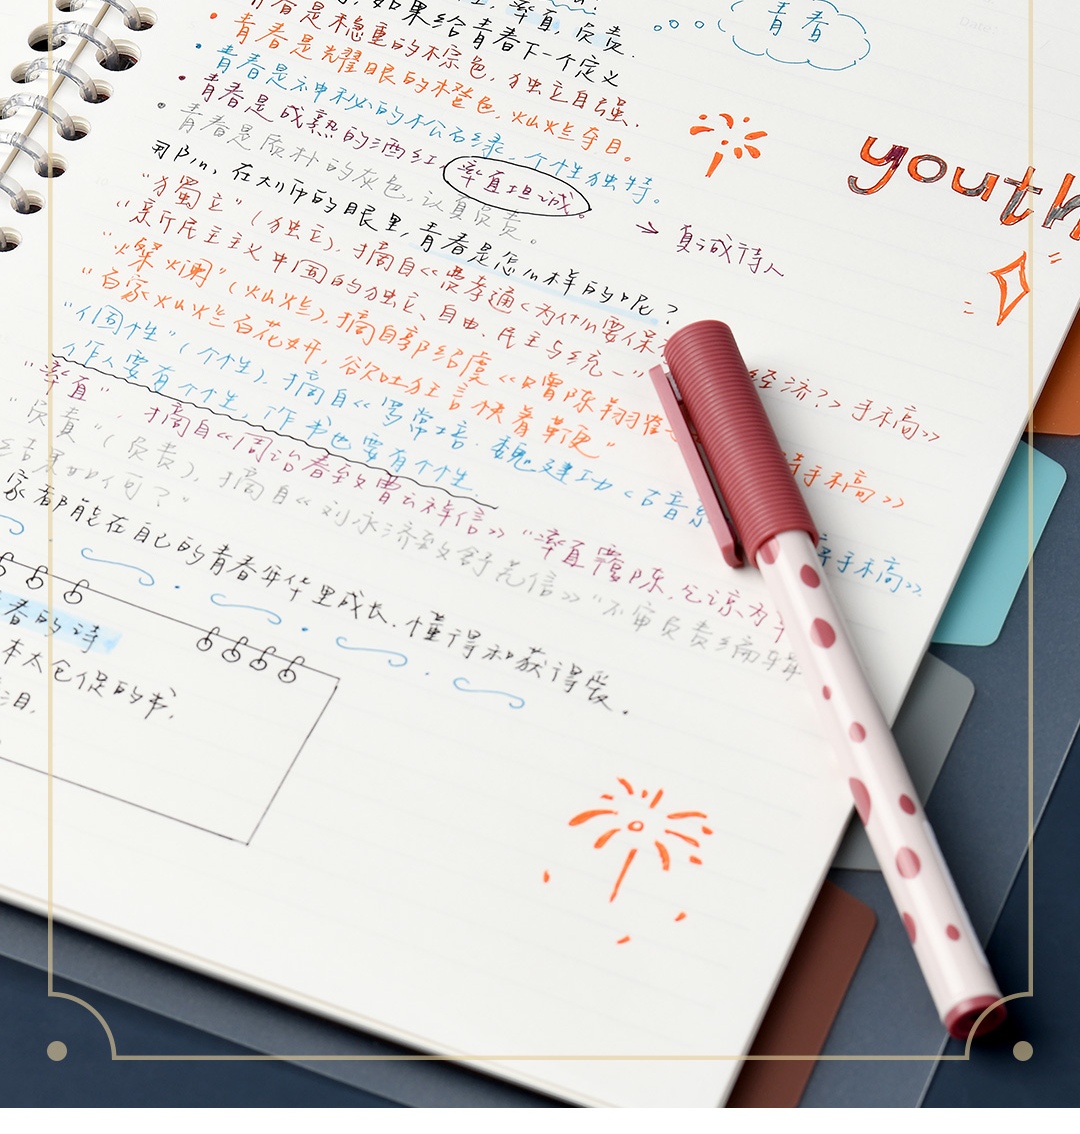 率直,负责.
如果给青春下一个定义
青春是稳重的棕色,独立自强.
青春是耀眼的橙色,灿烂夺目。
青春是神秘的松石绿,个性独特。
青春是成熟的酒红,率直坦诚。
→ 真诚待人
青春是质朴的灰色,认真负责。
那么,在大师的眼里,青春是怎么样的呢?
"獨立"(独立),摘自《费孝通<为什么要保 经济?>手稿》
"亲斤民主主义中国的独立、自由、民主与统一"
"燦爛"(灿烂),摘自郭绍虞《 陈翔鹤 手稿》
"百家灿烂百花妍,欲吐狂言快着鞭"
"個性"(个性),摘自《罗常培·魏建功<古音系 手稿》.
"作人要有个性,作书也要有个性.
"率直",摘自《周诒春致曹云祥信》"率直覆陈,乞谅为
"负责"(负责),摘自《刘永济致舒芜信》"不审负责编辑
结果如何?"
家都能在自己的青春年华里成长.懂得和获得爱.
青春
youth
春的诗
本太仓促的书,
泪,